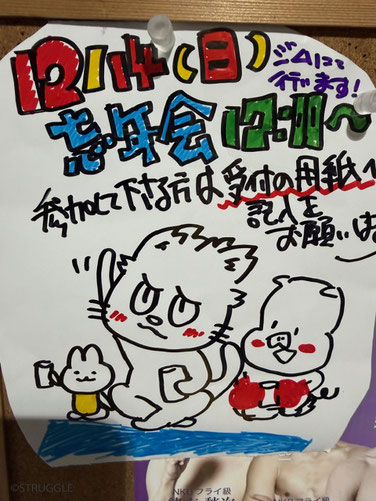 12/14(日)
ジムにて
行います!
忘年会 17:00〜
参加して下さる方は受付の用紙へ
記入を
お願いしま
NKBフライ級
©STRUGGLE